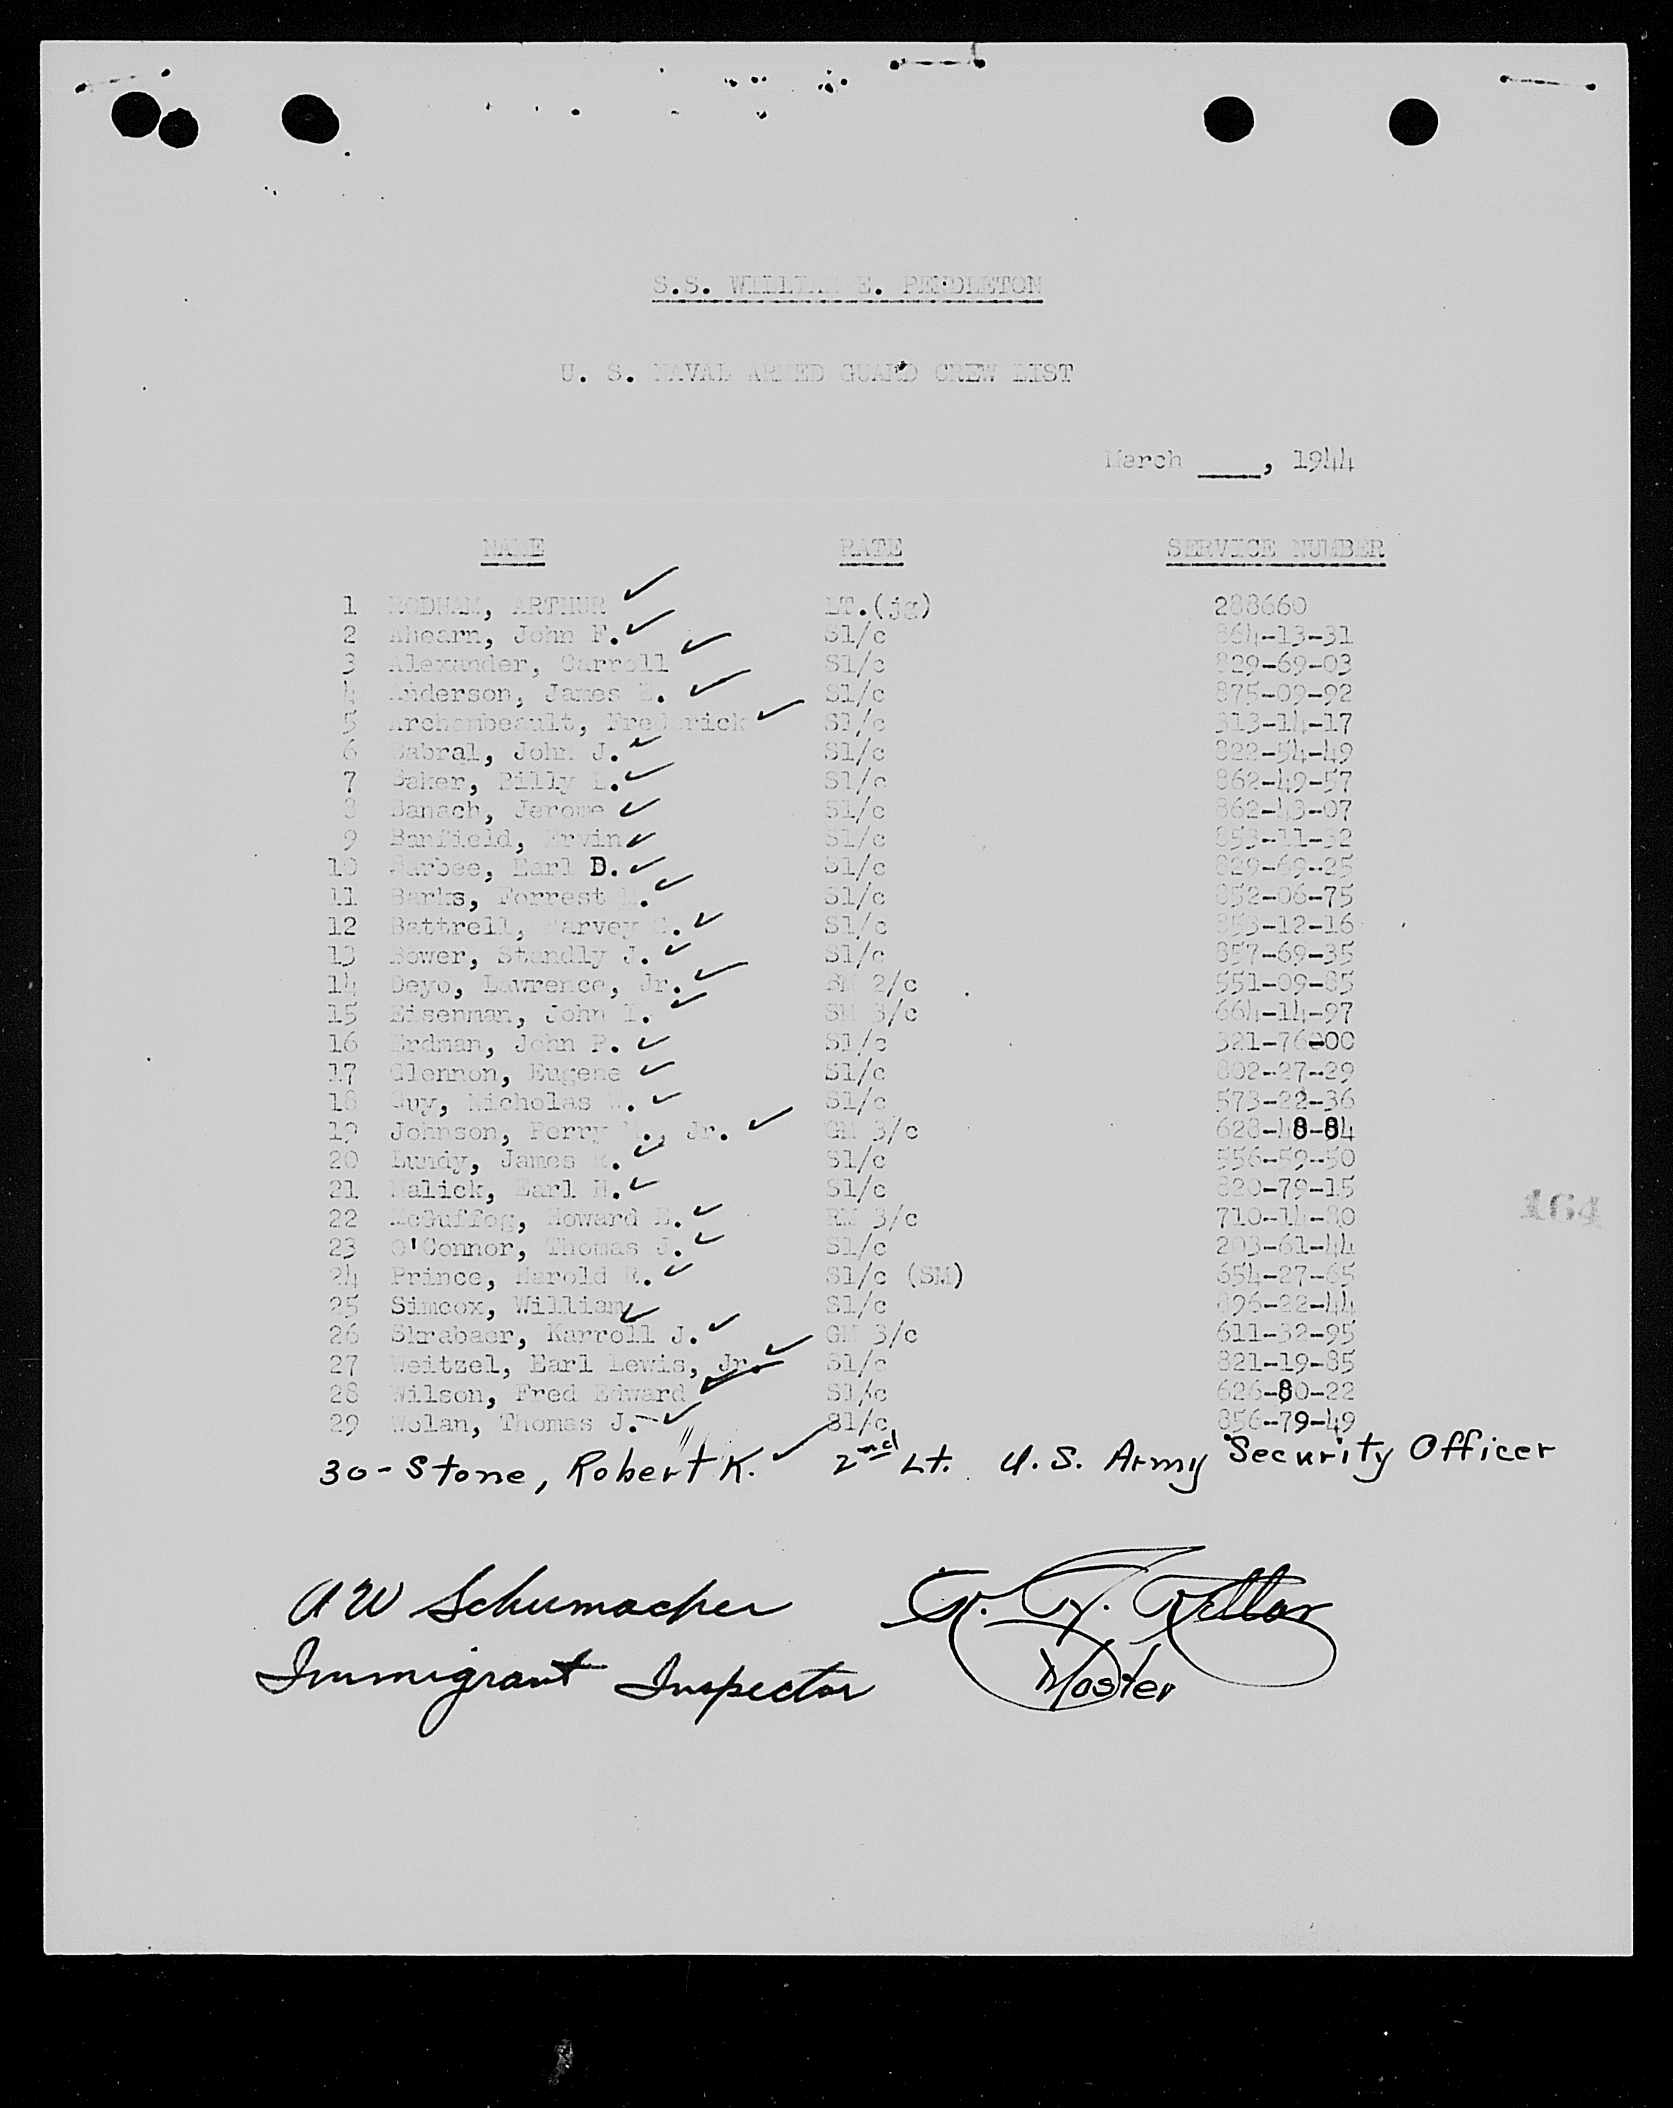 S.S. WILLIAM E. PENDLETON
U. S. NAVAL ARMED GUARD CREW LIST
March ____, 1944
NAME RATE SERVICE NUMBER
1 RODMAN, ARTHUR LT.(jg) 288660
2 Ahearn, John F. S1/c 864-13-31
3 Alexander, Carroll S1/c 829-69-03
4 Anderson, James S1/c 875-09-92
5 Archambeault, Frederick S1/c 313-14-17
6 Cabral, John J. S1/c 822-54-49
7 Baker, Billy L. S1/c 862-49-57
8 Banach, Jerome S1/c 862-43-07
9 Barfield, Ervin S1/c 853-11-32
10 Barbee, Earl D. S1/c 829-69-25
11 Barks, Forrest S1/c 852-06-75
12 Battrell, Harvey S1/c 853-12-16
13 Bower, Standly J. S1/c 857-69-35
14 Deyo, Lawrence, Jr. 2/c 551-09-85
15 Eisenman, John I. SM 3/c 664-14-97
16 Erdman, John P. S1/c 321-76-00
17 Glennon, Eugene S1/c 802-27-29
18 Guy, Nicholas S1/c 573-22-36
19 Johnson, Perry Jr. GM 3/c 628-48-84
20 Lundy, James S1/c 556-59-50
21 Malick, Earl H. S1/c 820-79-15
22 McGuffog, Howard E. RM 3/c 710-14-80
23 O'Connor, Thomas J. S1/c 203-61-44
24 Prince, Harold R. S1/c (SM) 654-27-65
25 Simcox, William S1/c 896-22-44
26 Skrabacr, Karroll J. GM 3/c 611-32-95
27 Weitzel, Earl Lewis, Jr. S1/c 821-19-85
28 Wilson, Fred Edward S1/c 626-80-22
29 Wolan, Thomas J. S1/c 856-79-49
30-Stone, Robert K. 2nd Lt. U. S. Army Security Officer
164
A W Schumacher
Immigrant Inspector
Master